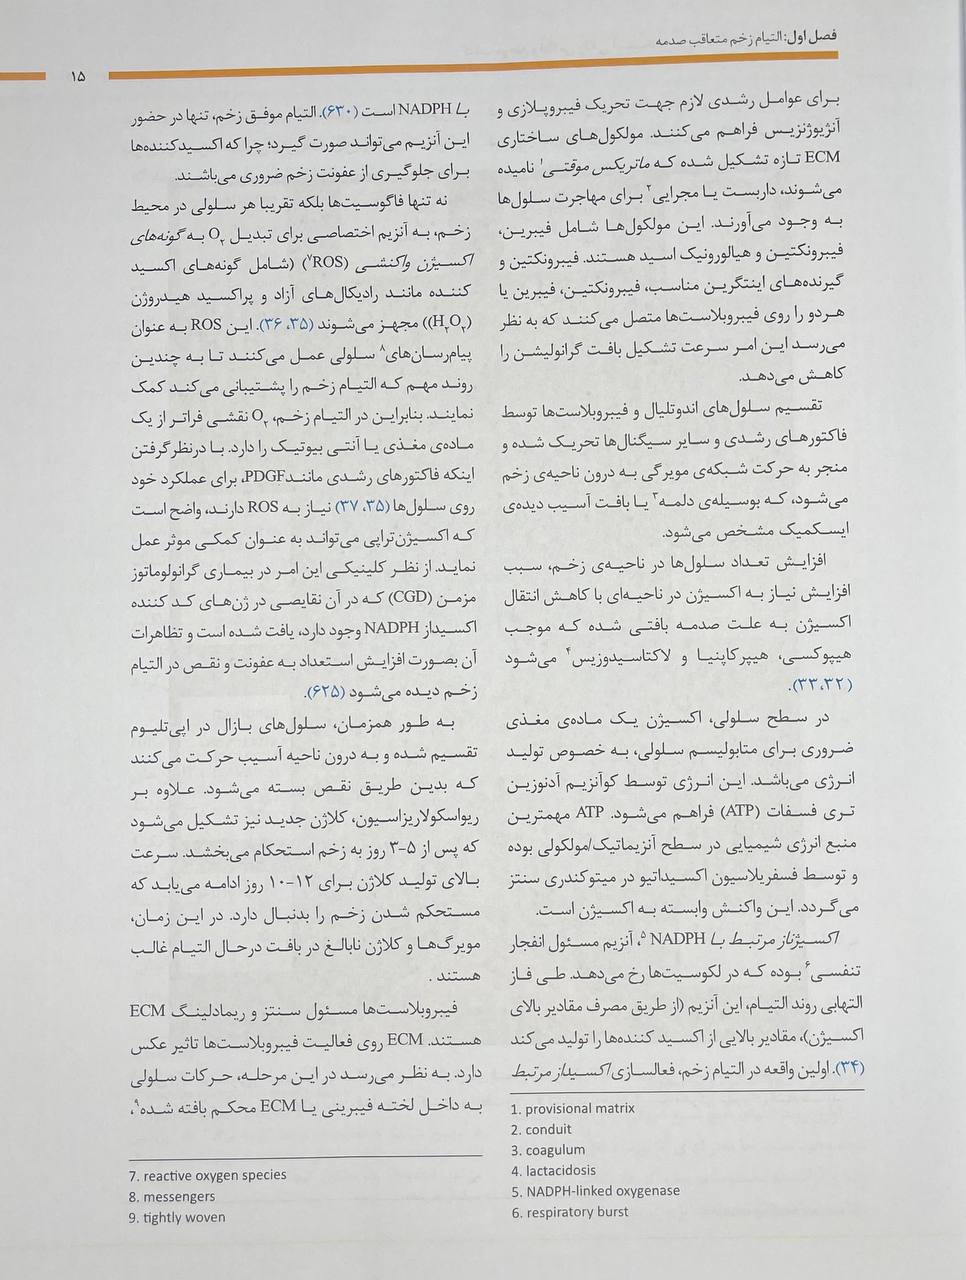 فصل اول: التیام زخم متعاقب صدمه
۱۵
برای عوامل رشدی لازم جهت تحریک فیبروپلازی و
آنژیوژنزیس فراهم می‌کنند. مولکول‌های ساختاری
ECM تازه تشکیل شده که ماتریکس موقتی۱ نامیده
می‌شوند، داربست یا مجرایی۲ برای مهاجرت سلول‌ها
به وجود می‌آورند. این مولکول‌ها شامل فیبرین،
فیبرونکتین و هیالورونیک اسید هستند. فیبرونکتین و
گیرنده‌های اینتگرین مناسب، فیبرونکتین، فیبرین یا
هردو را روی فیبروبلاست‌ها متصل می‌کنند که به نظر
می‌رسد این امر سرعت تشکیل بافت گرانولیشن را
کاهش می‌دهد.
تقسیم سلول‌های اندوتلیال و فیبروبلاست‌ها توسط
فاکتورهای رشدی و سایر سیگنال‌ها تحریک شده و
منجر به حرکت شبکه‌ی مویرگی به درون ناحیه‌ی زخم
می‌شود، که بوسیله‌ی دلمه۳ یا بافت آسیب دیده‌ی
ایسکمیک مشخص می‌شود.
افزایش تعداد سلول‌ها در ناحیه‌ی زخم، سبب
افزایش نیاز به اکسیژن در ناحیه‌ای با کاهش انتقال
اکسیژن به علت صدمه بافتی شده که موجب
هیپوکسی، هیپرکاپنیا و لاکتاسیدوزیس۴ می‌شود
(۳۳،۳۲).
در سطح سلولی، اکسیژن یک ماده‌ی مغذی
ضروری برای متابولیسم سلولی، به خصوص تولید
انرژی می‌باشد. این انرژی توسط کوآنزیم آدنوزین
تری فسفات (ATP) فراهم می‌شود. ATP مهمترین
منبع انرژی شیمیایی در سطح آنزیماتیک/مولکولی بوده
و توسط فسفریلاسیون اکسیداتیو در میتوکندری سنتز
می‌گردد. این واکنش وابسته به اکسیژن است.
اکسیژناز مرتبط با NADPH۵، آنزیم مسئول انفجار
تنفسی۶ بوده که در لکوسیت‌ها رخ می‌دهد. طی فاز
التهابی روند التیام، این آنزیم (از طریق مصرف مقادیر بالای
اکسیژن)، مقادیر بالایی از اکسید کننده‌ها را تولید می‌کند
(۳۴). اولین واقعه در التیام زخم، فعالسازی اکسیداز مرتبط
1. provisional matrix
2. conduit
3. coagulum
4. lactacidosis
5. NADPH-linked oxygenase
6. respiratory burst
با NADPH است (۶۳۰). التیام موفق زخم، تنها در حضور
این آنزیم می‌تواند صورت گیرد؛ چرا که اکسیدکننده‌ها
برای جلوگیری از عفونت زخم ضروری می‌باشند.
نه تنها فاگوسیت‌ها بلکه تقریبا هر سلولی در محیط
زخم، به آنزیم اختصاصی برای تبدیل O۲ به گونه‌های
اکسیژن واکنشی (ROS۷) (شامل گونه‌های اکسید
کننده مانند رادیکال‌های آزاد و پراکسید هیدروژن
(H۲O۲)) مجهز می‌شوند (۳۵، ۳۶). این ROS به عنوان
پیام‌رسان‌های۸ سلولی عمل می‌کنند تا به چندین
روند مهم که التیام زخم را پشتیبانی می‌کند کمک
نمایند. بنابراین در التیام زخم، O۲ نقشی فراتر از یک
ماده‌ی مغذی یا آنتی بیوتیک را دارد. با درنظرگرفتن
اینکه فاکتورهای رشدی مانندPDGF، برای عملکرد خود
روی سلول‌ها (۳۵، ۳۷) نیاز به ROS دارند، واضح است
که اکسیژن‌تراپی می‌تواند به عنوان کمکی موثر عمل
نماید. از نظر کلینیکی این امر در بیماری گرانولوماتوز
مزمن (CGD) که در آن نقایصی در ژن‌های کد کننده
اکسیداز NADPH وجود دارد، یافت شده است و تظاهرات
آن بصورت افزایش استعداد به عفونت و نقص در التیام
زخم دیده می‌شود (۶۲۵).
به طور همزمان، سلول‌های بازال در اپی‌تلیوم
تقسیم شده و به درون ناحیه آسیب حرکت می‌کنند
که بدین طریق نقص بسته می‌شود. علاوه بر
ریواسکولاریزاسیون، کلاژن جدید نیز تشکیل می‌شود
که پس از ۵-۳ روز به زخم استحکام می‌بخشد. سرعت
بالای تولید کلاژن برای ۱۲-۱۰ روز ادامه می‌یابد که
مستحکم شدن زخم را بدنبال دارد. در این زمان،
مویرگ‌ها و کلاژن نابالغ در بافت درحال التیام غالب
هستند .
فیبروبلاست‌ها مسئول سنتز و ریمادلینگ ECM
هستند. ECM روی فعالیت فیبروبلاست‌ها تاثیر عکس
دارد. به نظر می‌رسد در این مرحله، حرکات سلولی
به داخل لخته فیبرینی یا ECM محکم بافته شده۹،
7. reactive oxygen species
8. messengers
9. tightly woven